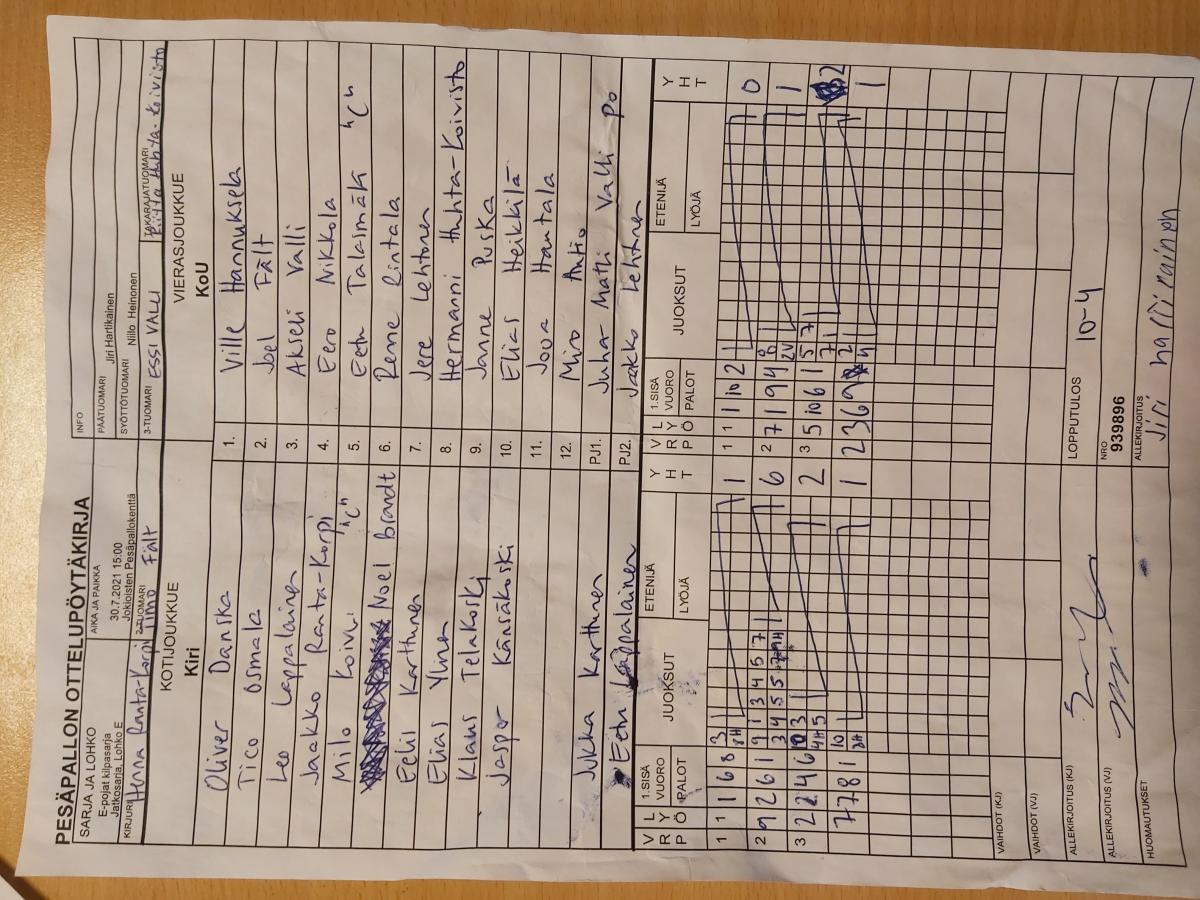 PESÄPALLON OTTELUPÖYTÄKIRJA
SARJA JA LOHKO
E-pojat kilpasarja
Jatkosarja, Lohko E
AIKA JA PAIKKA
30.7.2021 15:00
Jokioisten Pesäpallokenttä
INFO
PÄÄTUOMARI Jiri Hartikainen
SYÖTTÖTUOMARI Niilo Heinonen
KIRJURI Henna Ranta-Korpi
2-TUOMARI Timo Fält
3-TUOMARI ESSI VALLI
TAKARAJATUOMARI Riitta Huhta-Koivisto
KOTIJOUKKUE
Kiri
VIERASJOUKKUE
KoU
Oliver Danska 1. Ville Hannuksela
Tico Osmala 2. Joel Fält
Leo Lappalainen 3. Akseli Valli
Jaakko Ranta-Korpi 4. Eero Nikkola
Milo Koivu "C" 5. Eetu Talasmäki "C"
Noel Brandt 6. Renne Rintala
Eelis Karttunen 7. Jere Lehtonen
Elias 8. Hermanni Huhta-Koivisto
Klaus Telakoski 9. Janne Puska
Jasper Känsäkoski 10. Elias Heikkilä
11. Jova Hautala
12. Miro Autio
Jukka Karttunen PJ1. Juha-Matti Valli PO
Eetu Lappalainen PJ2. Jaakko Lehtinen
V R P L Y Ö 1.SISÄ VUORO PALOT JUOKSUT ETENIJÄ LYÖJÄ Y H T
V R P L Y Ö 1.SISÄ VUORO PALOT JUOKSUT ETENIJÄ LYÖJÄ Y H T
1 1 1 6 8 3 1
8H
1 1 1 10 2 1 0
2 9 2 6 1 9 1 3 4 5 7 6
3 4 5 5
2 7 1 9 4 8 1 1
2V
3 2 2 4 6 10 3 2
4H 5
3 5 10 6 1 5 7 2
7 1
7 7 8 1 10 1
2 3 6 9 2 1
4
VAIHDOT (KJ)
VAIHDOT (VJ)
ALLEKIRJOITUS (KJ)
LOPPUTULOS 10-4
ALLEKIRJOITUS (VJ)
NRO
939896
HUOMAUTUKSET
ALLEKIRJOITUS
Jiri